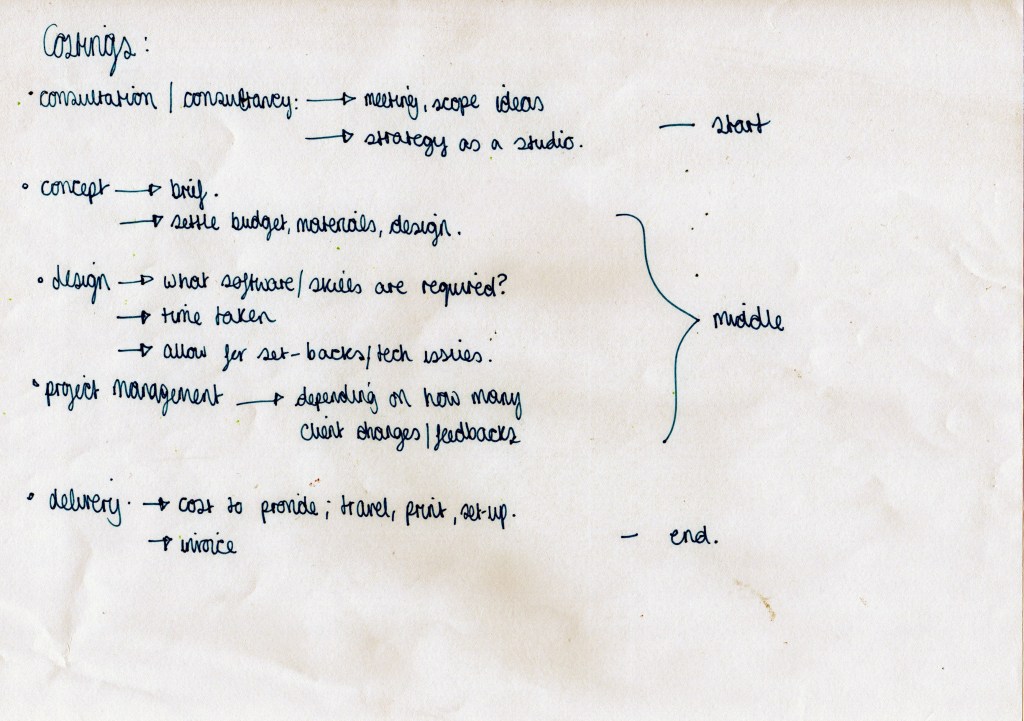 Costings:
• consultation / consultancy: → meeting, scope ideas
→ strategy as a studio.
— start
• concept → brief.
→ settle budget, materials, design.
• design → what software/skills are required?
→ time taken
→ allow for set-backs/tech issues.
middle
• project management → depending on how many
client changes/feedbacks
• delivery. → cost to provide; travel, print, set-up.
→ invoice
— end.